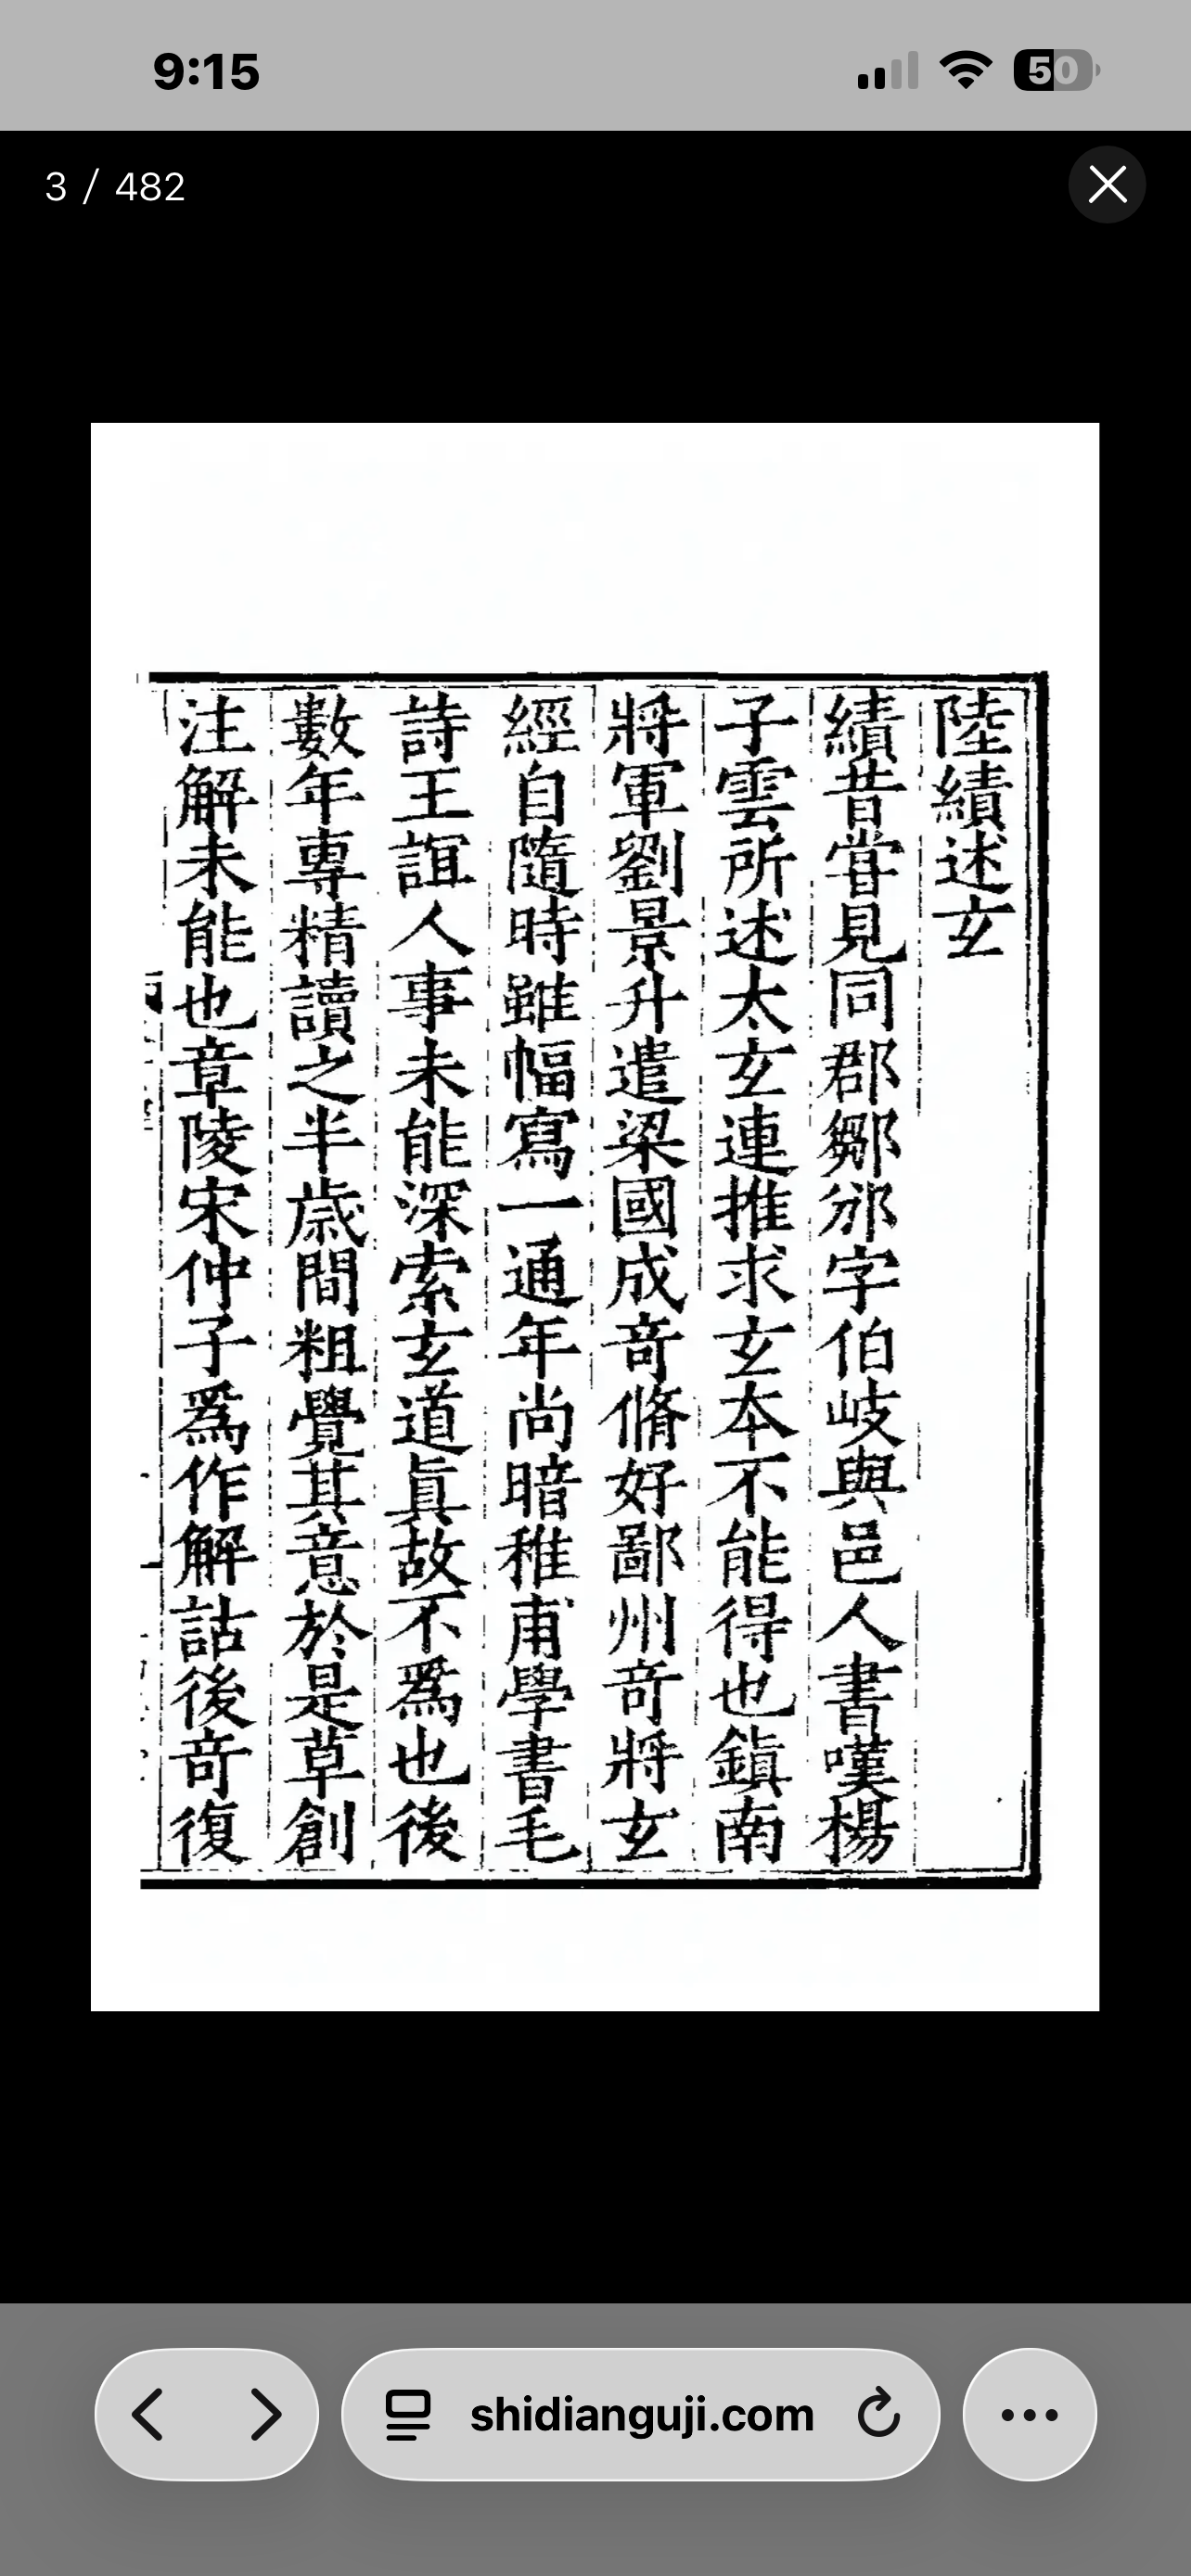 9:15
50
3 / 482
陸績述玄
績昔甞見同郡鄒邠字伯岐與邑人書嘆楊
子雲所述太玄連推求玄本不能得也鎮南
將軍劉景升遣梁國成竒脩好鄙州竒將玄
經自隨時雖幅寫一通年尚暗稚甫學書毛
詩王誼人事未能深索玄道眞故不爲也後
數年專精讀之半歳間粗覺其意於是草創
注解未能也章陵宋仲子爲作解詁後竒復
shidianguji.com